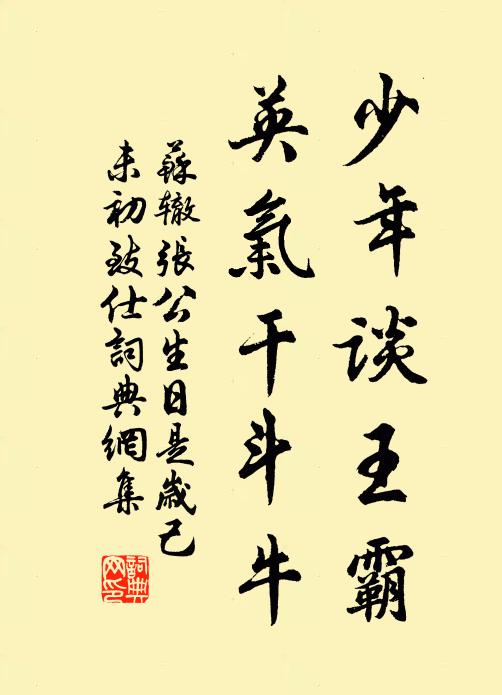 少年谈王霸
英氣干斗牛
蘇辙張公生日是歲己
未初致仕詞典網集
詞典
网印